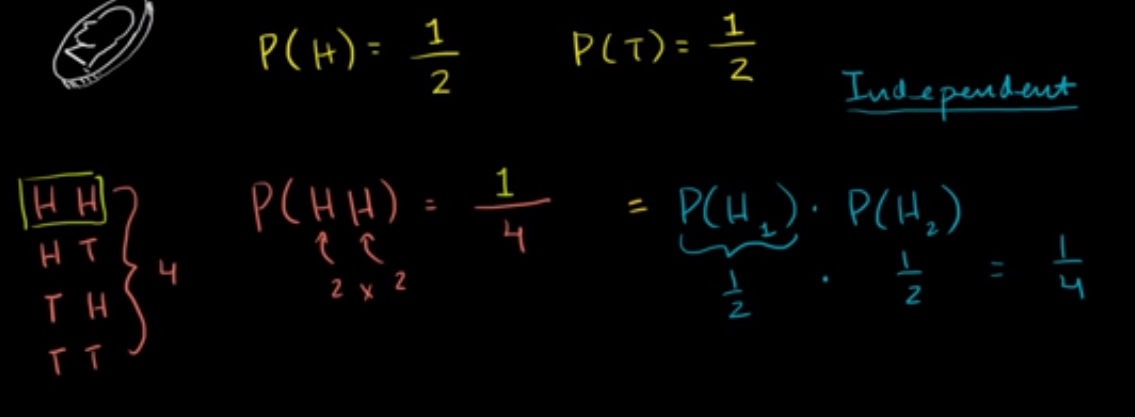 P(H) = 1/2 P(T) = 1/2
Independent
H H
H T
T H
T T
4
P(H H) = 1/4 = P(H₁) · P(H₂)
2 x 2
1/2 · 1/2 = 1/4